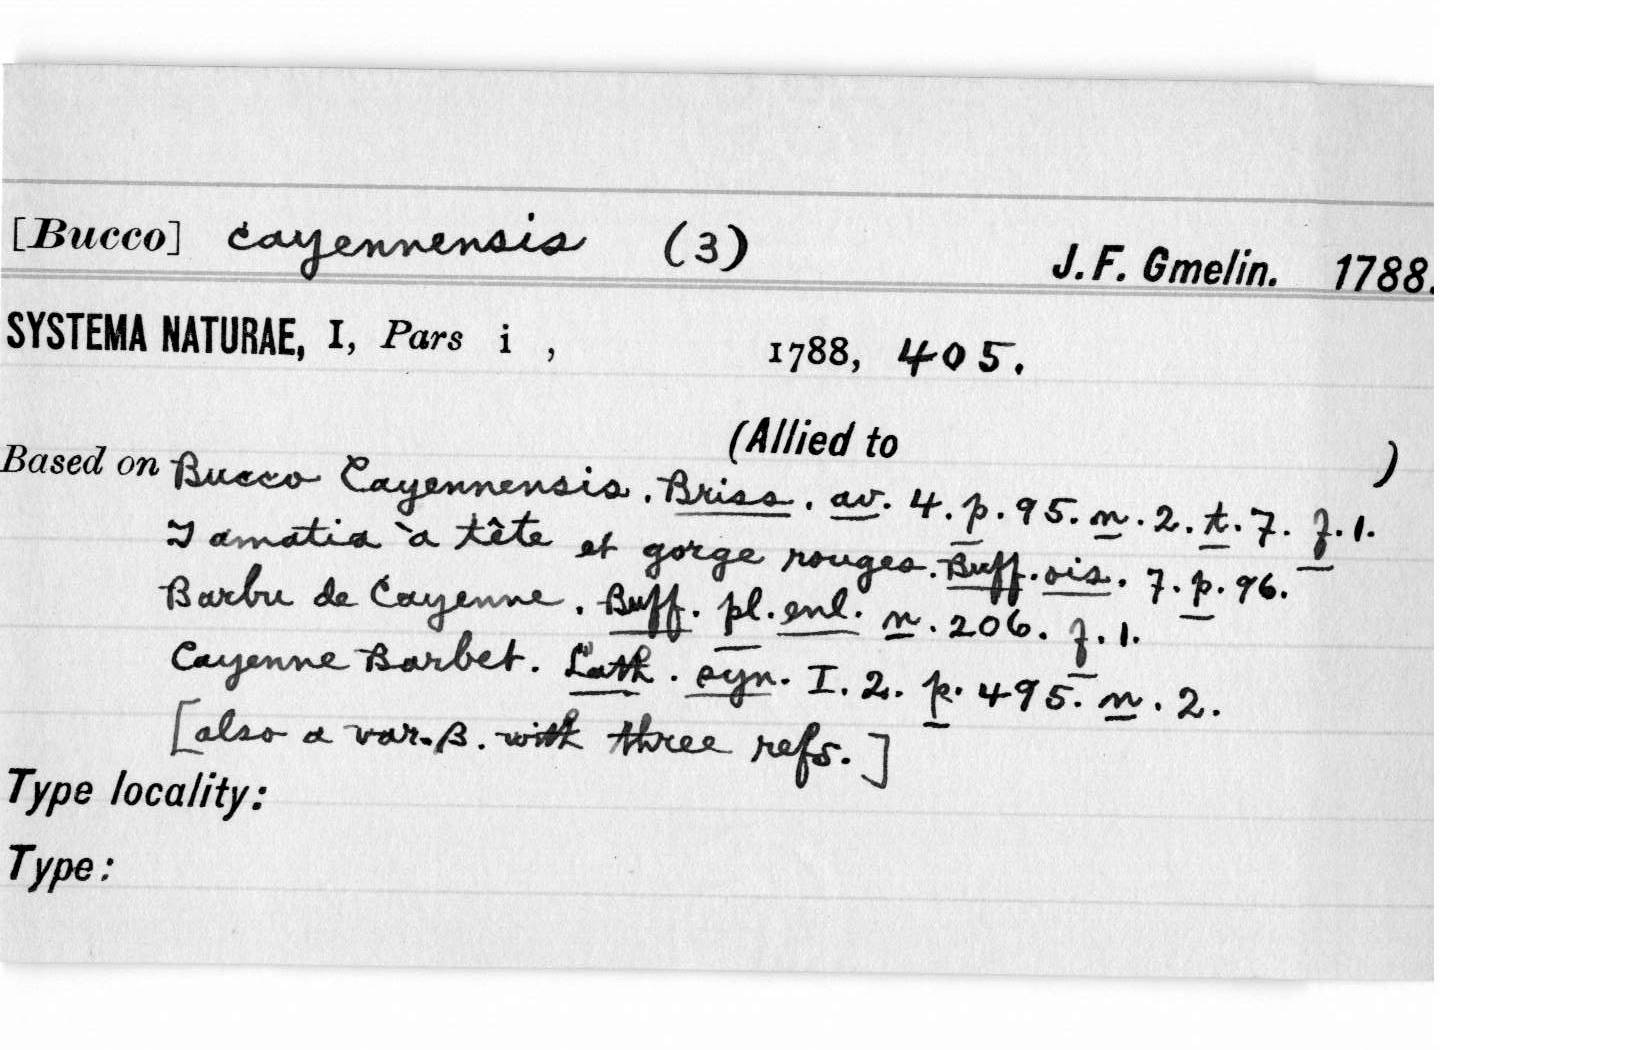 [Bucco] cayennensis (3) J. F. Gmelin. 1788.
SYSTEMA NATURAE, I, Pars i , 1788, 405.
(Allied to )
Based on Bucco Cayennensis. Briss. av. 4. p. 95. n. 2. t. 7. f. 1.
Tamatia à tête et gorge rouges. Buff. ois. 7. p. 96.
Barbu de Cayenne. Buff. pl. enl. n. 206. f. 1.
Cayenne Barbet. Lath. syn. I. 2. p. 495. n. 2.
[also a var. β. with three refs.]
Type locality:
Type: